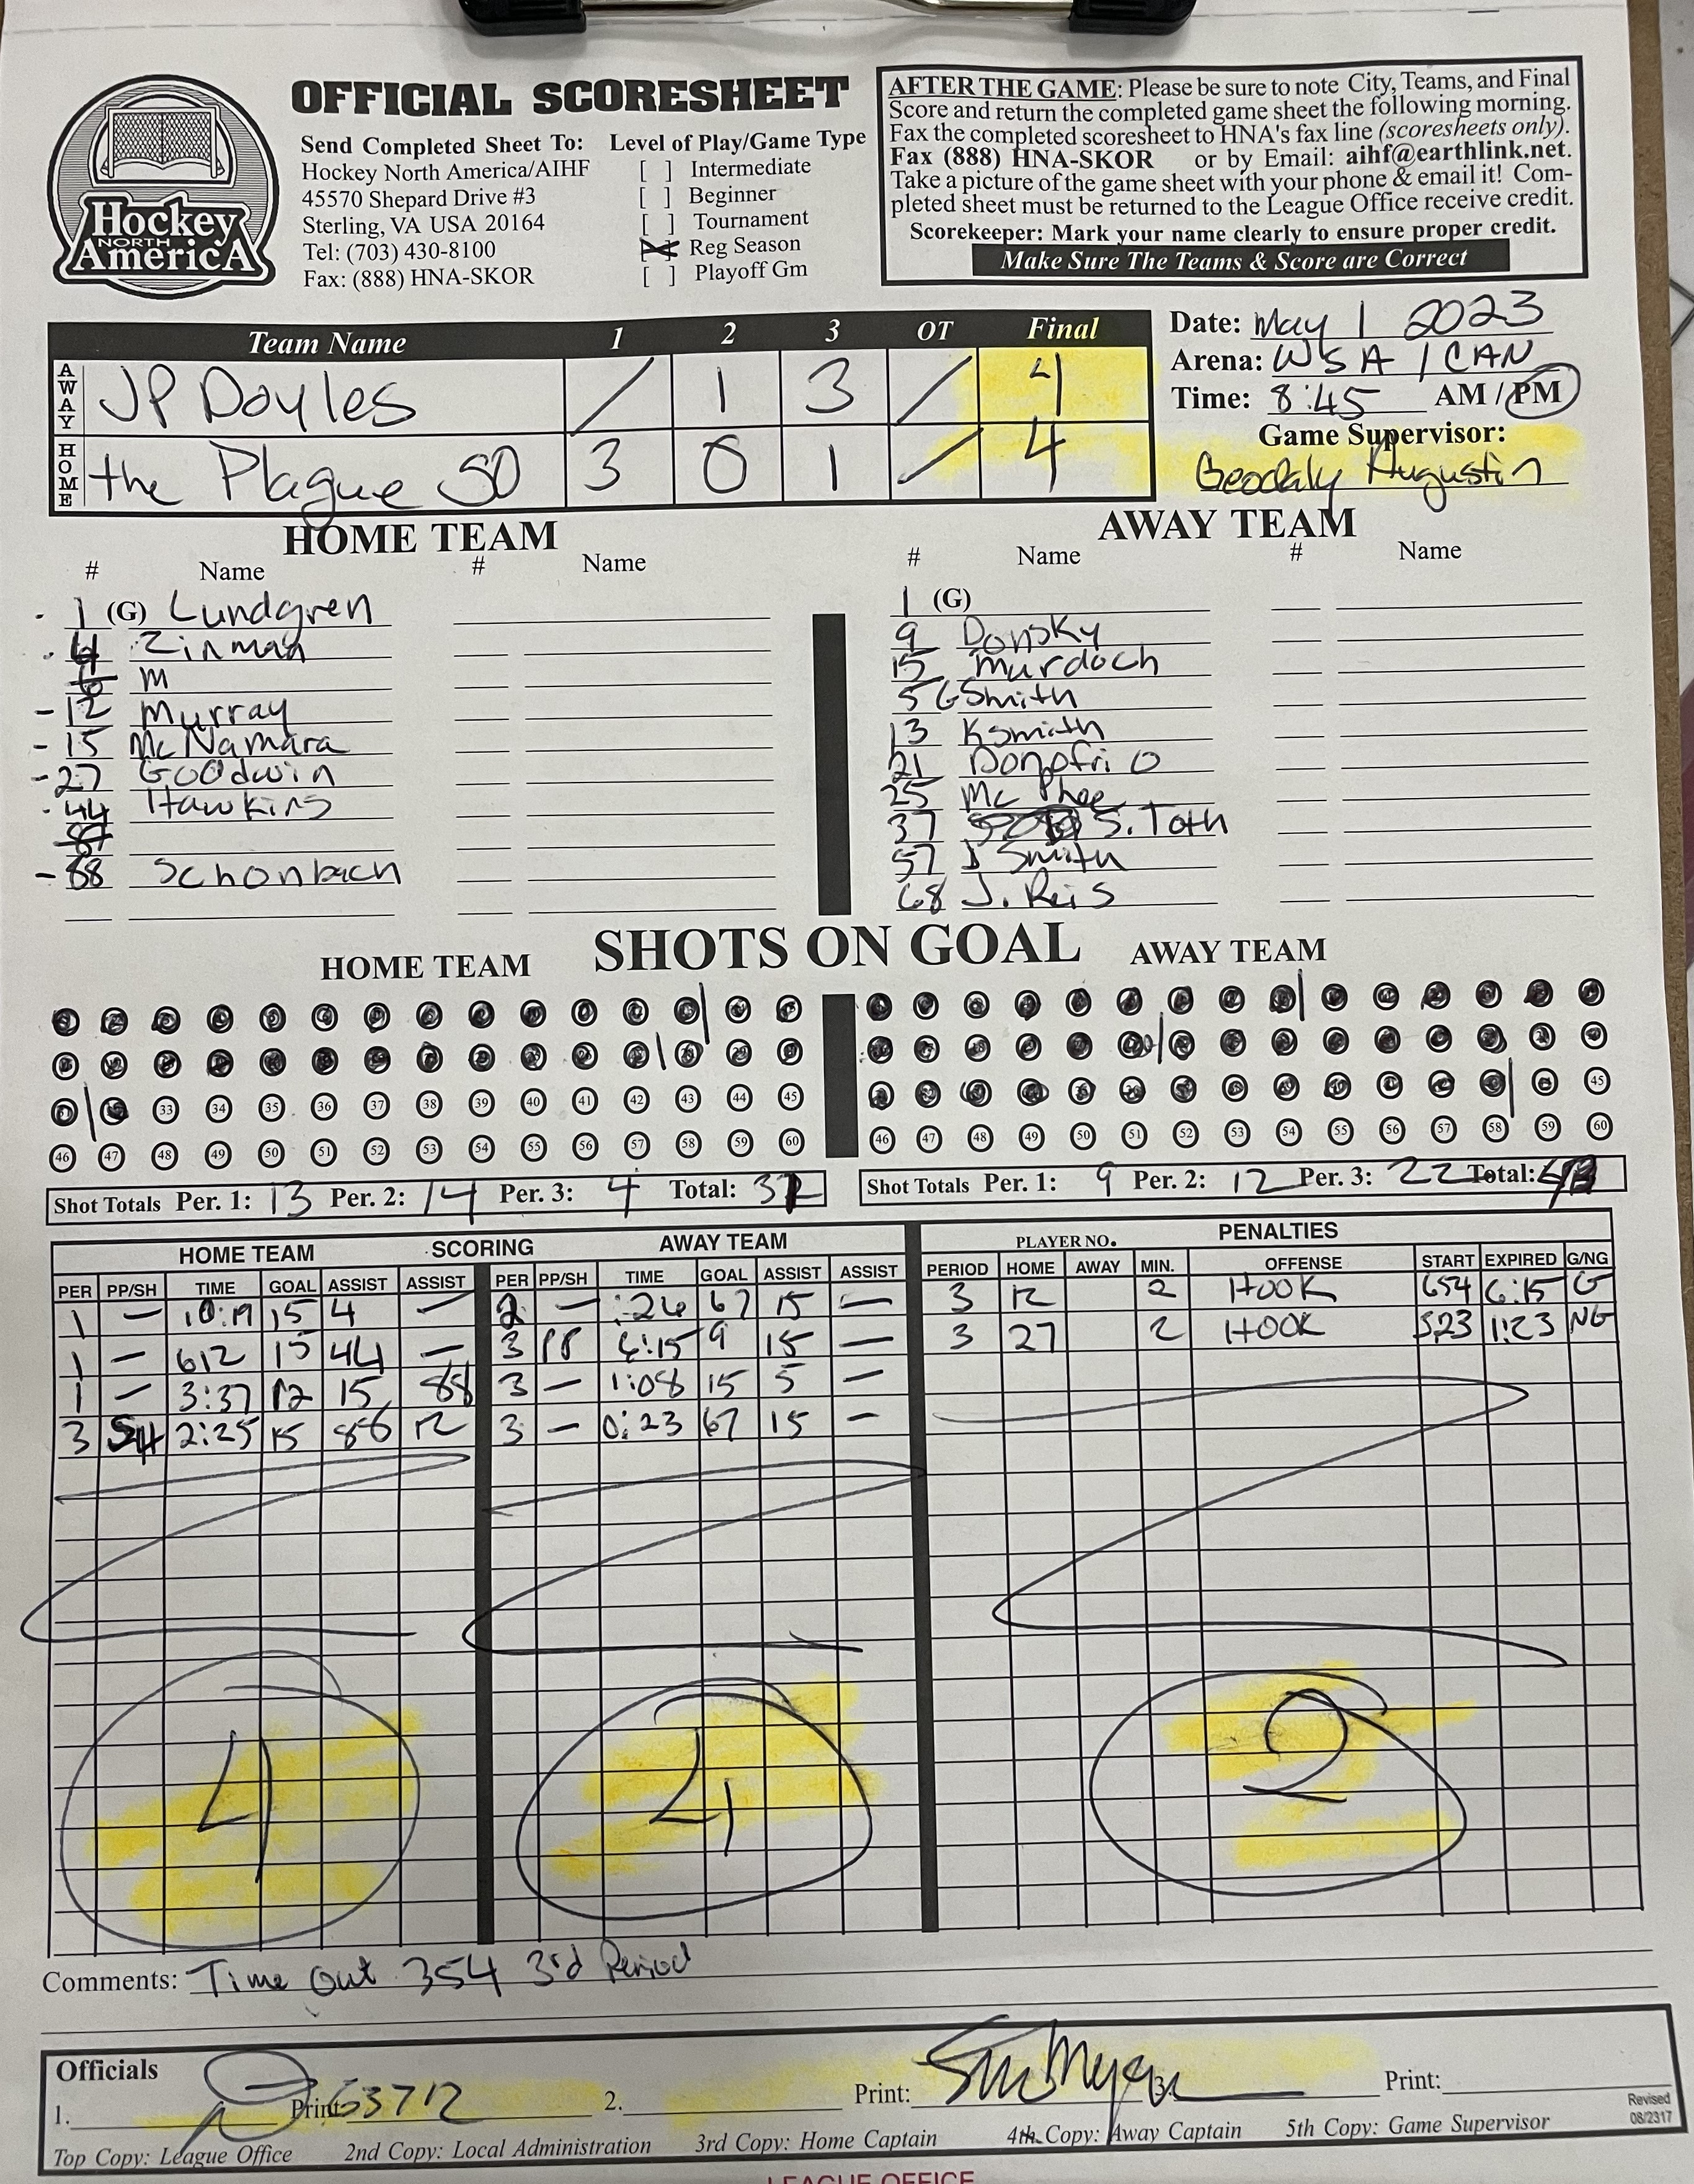 OFFICIAL SCORESHEET
Hockey
NORTH
AmericA
Send Completed Sheet To:
Hockey North America/AIHF
45570 Shepard Drive #3
Sterling, VA USA 20164
Tel: (703) 430-8100
Fax: (888) HNA-SKOR
Level of Play/Game Type
[ ] Intermediate
[ ] Beginner
[ ] Tournament
[X] Reg Season
[ ] Playoff Gm
AFTER THE GAME: Please be sure to note City, Teams, and Final
Score and return the completed game sheet the following morning.
Fax the completed scoresheet to HNA's fax line (scoresheets only).
Fax (888) HNA-SKOR or by Email: aihf@earthlink.net.
Take a picture of the game sheet with your phone & email it! Com-
pleted sheet must be returned to the League Office receive credit.
Scorekeeper: Mark your name clearly to ensure proper credit.
Make Sure The Teams & Score are Correct
Team Name 1 2 3 OT Final
AWAY JP Doyles / 1 3 / 4
HOME the Plague SO 3 0 1 / 4
Date: May 1 2023
Arena: WSA / CAN
Time: 8:45 AM / PM
Game Supervisor:
Augustin
HOME TEAM
# Name # Name
1 (G) Lundgren
4 Zinman
6 M
12 Murray
15 McNamara
27 Goodwin
44 Hawkins
87
88 Schonbach
AWAY TEAM
# Name # Name
1 (G)
9 Donsky
15 Murdoch
5 G Smith
13 K Smith
21 Donofrio
25 Mc Phee
37 S. Toth
57 Smith
68 J. Reis
SHOTS ON GOAL
HOME TEAM
33 34 35 36 37 38 39 40 41 42 43 44 45
46 47 48 49 50 51 52 53 54 55 56 57 58 59 60
Shot Totals Per. 1: 13 Per. 2: 14 Per. 3: 4 Total:
AWAY TEAM
45
46 47 48 49 50 51 52 53 54 55 56 57 58 59 60
Shot Totals Per. 1: 9 Per. 2: 12 Per. 3: 22 Total:
HOME TEAM SCORING AWAY TEAM
PER PP/SH TIME GOAL ASSIST ASSIST PER PP/SH TIME GOAL ASSIST ASSIST
1 — 10:19 15 4 — 2 — :26 67 15 —
1 — 612 15 44 — 3 PP 6:15 9 15 —
1 — 3:37 12 15 88 3 — 1:08 15 5 —
3 SH 2:25 15 12 3 — 0:23 67 15 —
4 4
PLAYER NO. PENALTIES
PERIOD HOME AWAY MIN. OFFENSE START EXPIRED G/NG
3 12 2 HOOK 654 6:15 G
3 27 2 HOOK 323 1:23 NG
2
Comments: Time Out 354 3rd Period
Officials
1. Print: 63712 2. Print: 3. Print:
Revised
08/2317
Top Copy: League Office 2nd Copy: Local Administration 3rd Copy: Home Captain 4th Copy: Away Captain 5th Copy: Game Supervisor
LEAGUE OFFICE